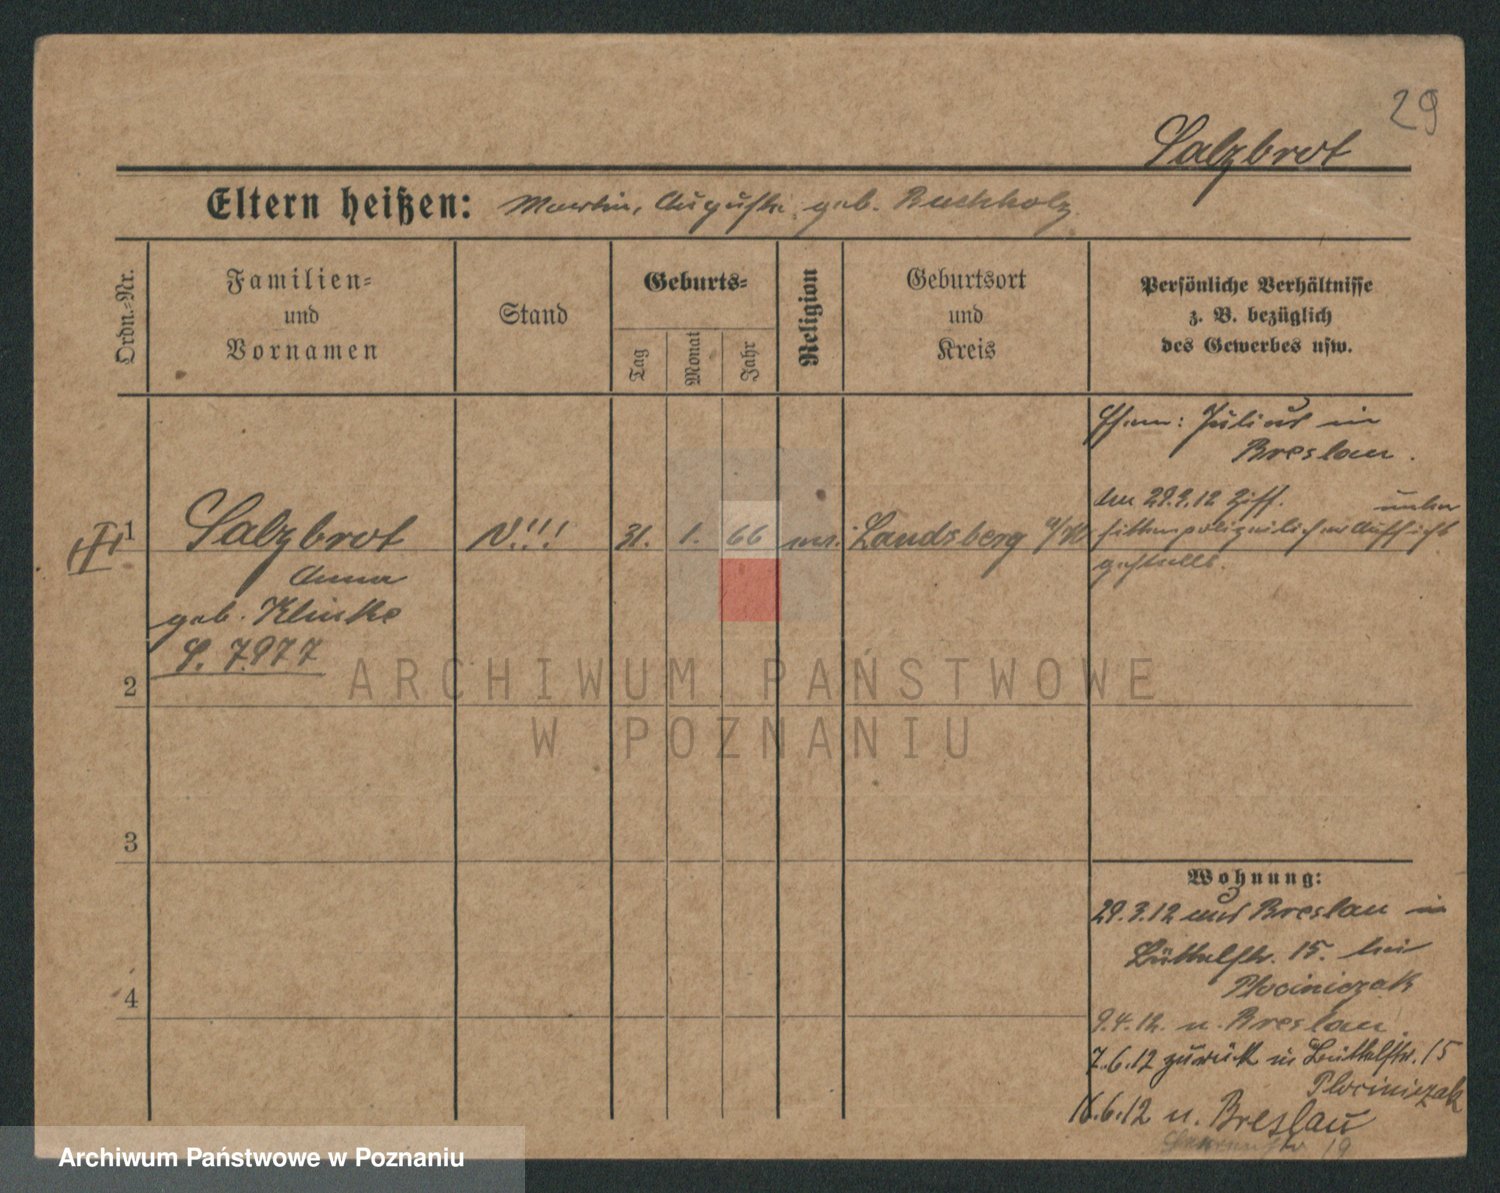 29
Salzbrot
Eltern heißen: Martin, Auguste geb. Buchholz
Ordn.-Nr.
Familien-
und
Vornamen
Stand
Geburts-
Tag
Monat
Jahr
Religion
Geburtsort
und
Kreis
Persönliche Verhältnisse
z. B. bezüglich
des Gewerbes usw.
Ehem: Julius in
Breslau.
1
Salzbrot
31.
1.
66
Landsberg a/W
Anna
geb. Klinke
S. 7977
den 29.3.12 unter
sittenpolizeilicher Aufsicht
gestellt.
2
3
4
Wohnung:
29.3.12 aus Breslau in
Büttelstr. 15. bei
Plociniczak
9.4.12. n. Breslau.
7.6.12 zurück in Büttelstr. 15
Plociniczak
16.6.12 n. Breslau
19
ARCHIWUM PAŃSTWOWE
W POZNANIU
Archiwum Państwowe w Poznaniu